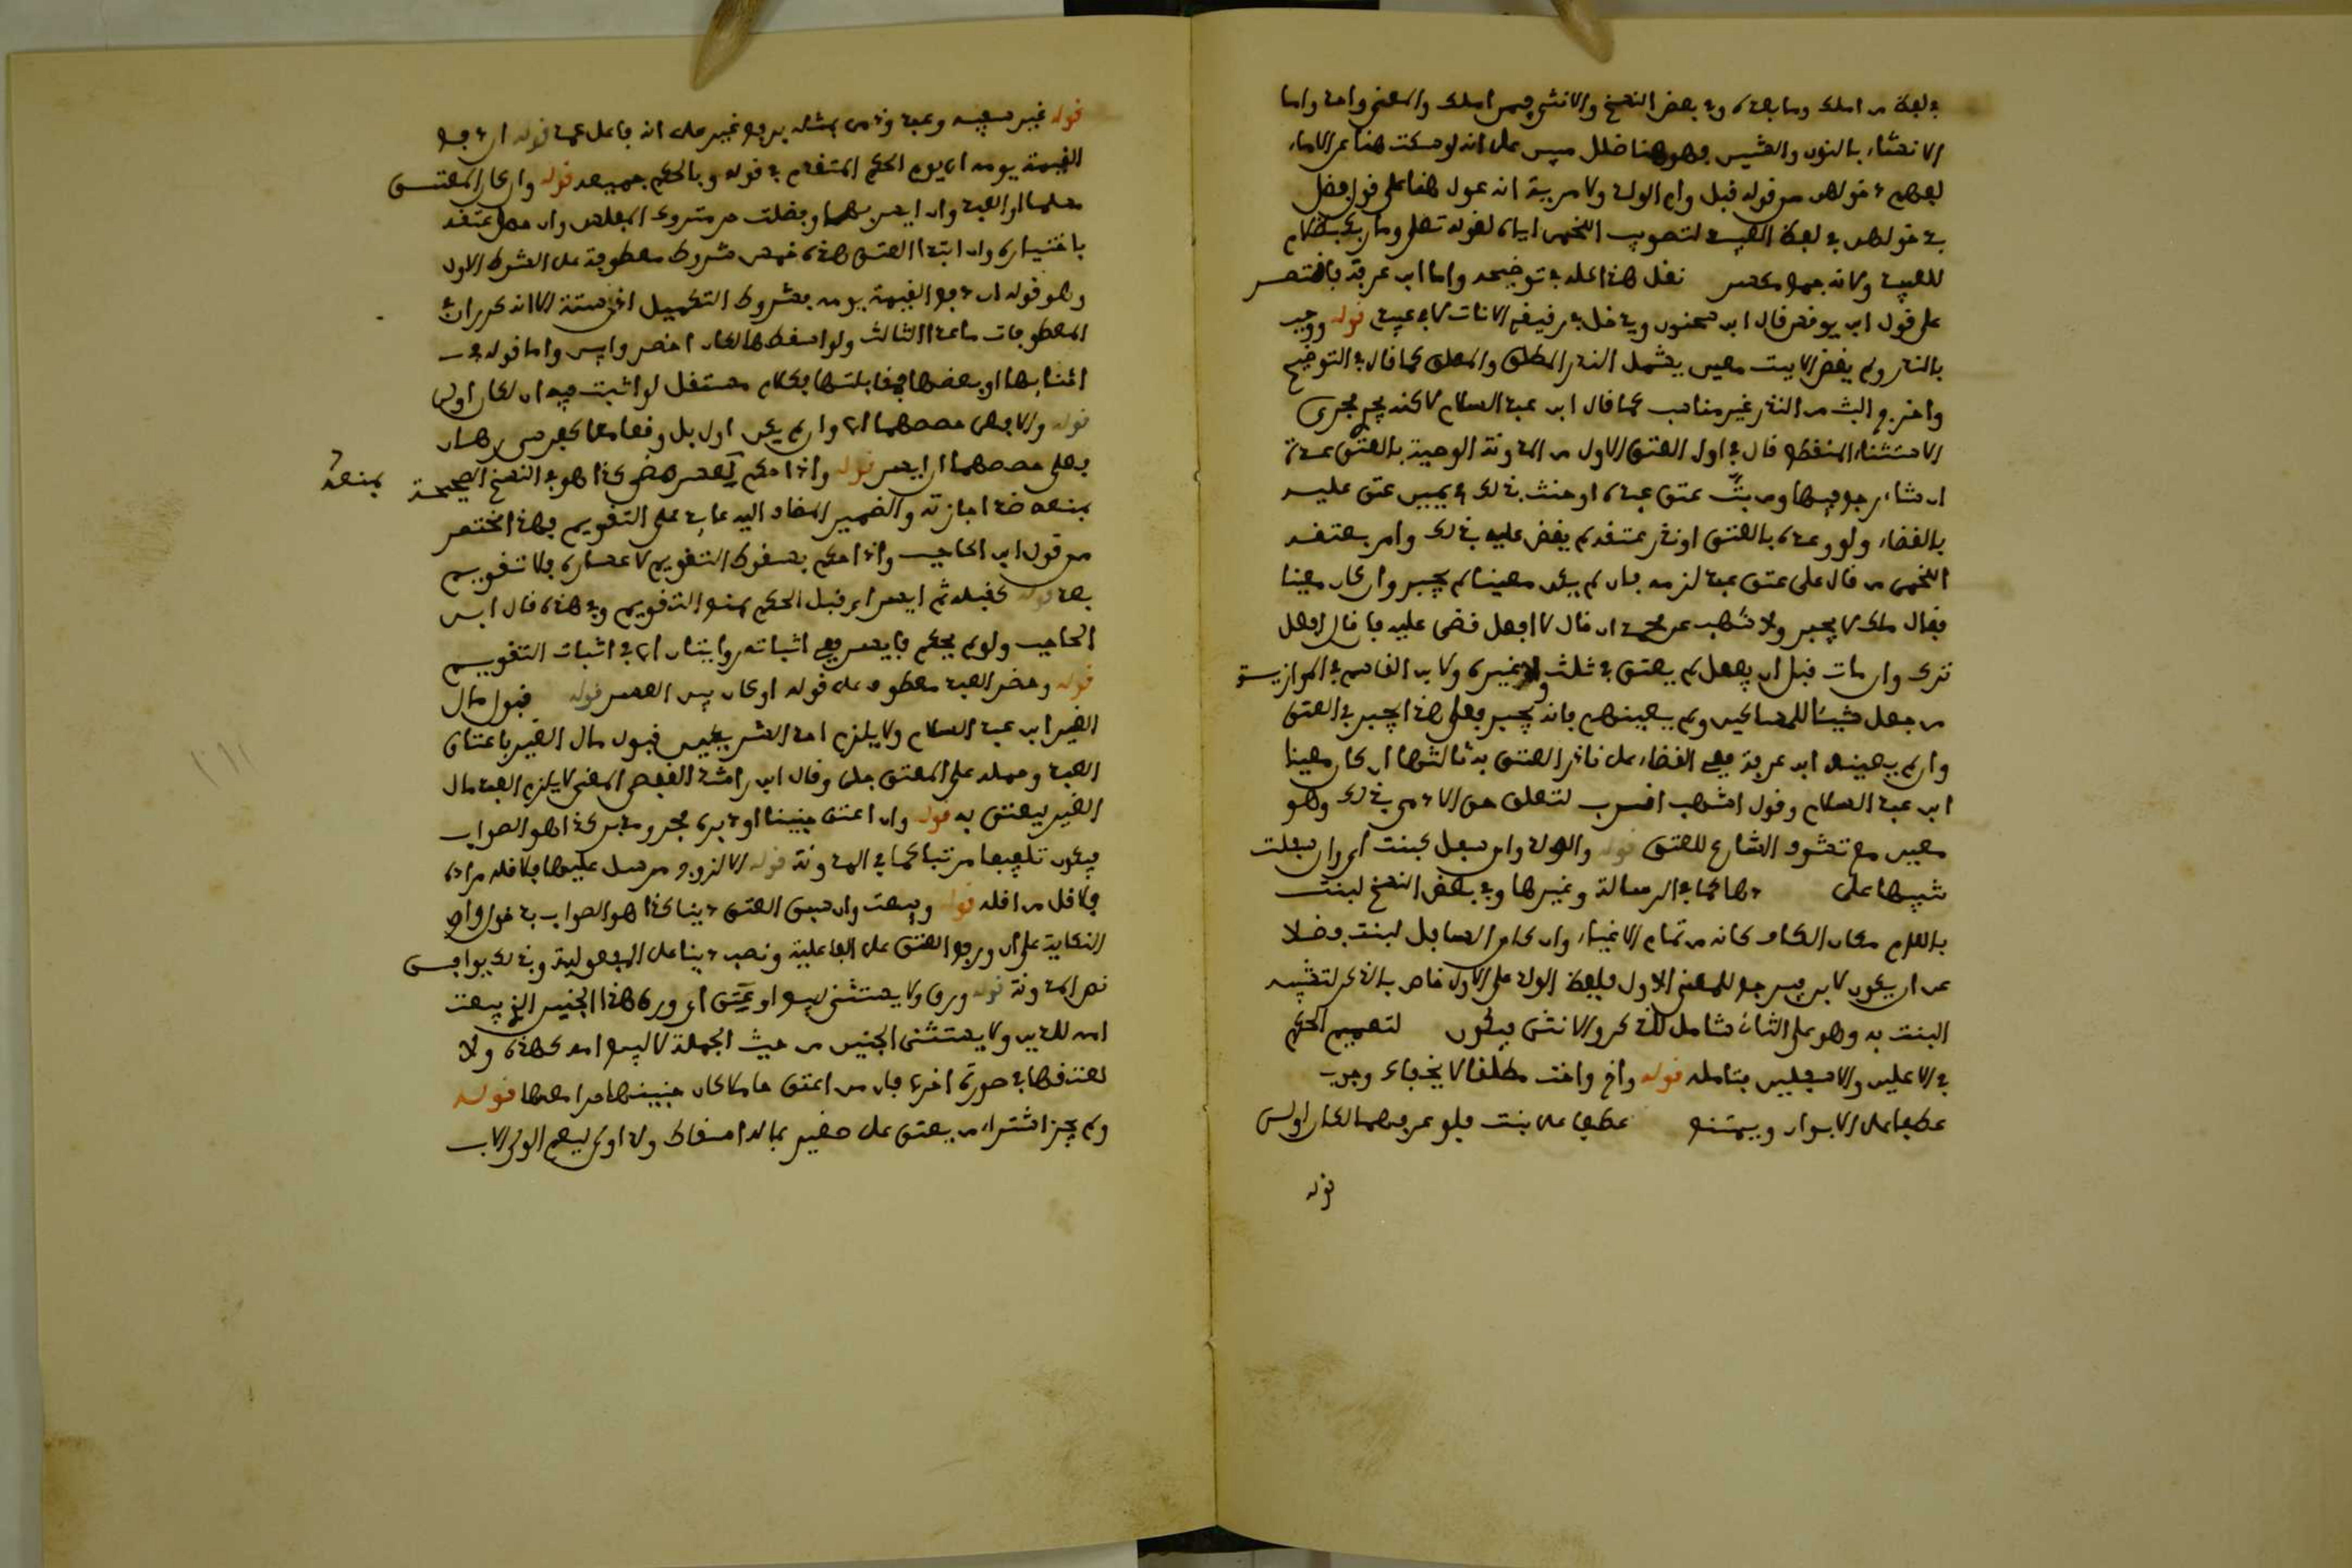 في لفظ من املك وما بعده وفي بعض النسخ والانثى فيمن املك والمعنى واحد واما
الانشاء بالنون والشين فهو هنا خلل مبين على انه لو سكت هنا عن الاماء
لفهم دخولهن من قوله قبل وام الولد ولا مرية انه عول هنا على قول فضل
بدخولهن في لفظ العبيد لتصويب اللخمي اياه لقوله تعلى وما ربك بظلام
للعبيد ولانه جمع مكسر نقل هذا كله في توضيحه واما ابن عرفة فاقتصر
على قول ابن يونس قال ابن سحنون ويدخل في رقيقي الاناث لا في عبيدي قوله ووجب
بالنذر ولم يقض الا ببت معين يشمل النذر المطلق والمعلق كما قال في التوضيح
واخراج البت من النذر غير مناسب كما قال ابن عبد السلام لاكنه يجري مجرى
الاستثناء المنقطع قال في اول العتق الاول من المدونة الوصية بالعتق عدة
ان شاء رجع فيها ومن بت عتق عبده او حنث بذلك في يمين عتق عليه
بالقضاء ولو وعده بالعتق او نذر عتقه لم يقض عليه بذلك وامر بعتقه
اللخمي من قال على عتق عبد لزمه فان لم يكن معينا لم يجبر وان كان معينا
فقال ملك لا يجبر ولاشهب عن محمد ان قال لا افعل قضى عليه فان قال افعل
ترك وان مات قبل ان يفعل لم يعتق في ثلث ولا غيره ولابن القاسم في الموازية
من جعل شيئا للمساكين ولم يعينهم فانه يجبر فعلى هذا يجبر في العتق
وان لم يعينه ابن عرفة ففي القضاء على ناذر العتق به ثالثها ان كان معينا
ابن عبد السلام وقول اشهب اقرب لتعلق حق الادمي بذلك وهو
معين مع تشوف الشارع للعتق قوله والولد وان سفل كبنت اي وان سفلت
شبيها على دها كما في الرسالة وغيرها وفي بعض النسخ لبنت
باللام مكان الكاف كانه من تمام الاغياء وان كان السافل لبنت فضلا
عن ان يكون لابن فيرجع للمعنى الاول فلفظ الولد على الاول خاص بالذكر لتشبيه
البنت به وهو على الثاني شامل للذكر والانثى فيكون لتعميم الحكم
في الاعلين والاسفلين فتامله قوله واخ واخت مطلقا لا يخفاك وجوب
عطفها على الابوان ويمتنع عطفها على بنت فلو عرفهما لكان اولى
قوله
قوله غير سفيه وعبد وذمي بمثله برفع غير على انه فاعل عمد قوله ان دفع
القيمة يومه اي يوم الحكم المتقدم في قوله وبالحكم جميعه قوله وان كان المعتق
مسلما او العبد وان ايسر بها وفضلت عن متروك المفلس وان حصل عتقه
باختياره وان ابتدا العتق هذه خمس شروط معطوفة على الشرط الاول
وهو قوله ان دفع القيمة يومه فشروط التكميل اذن ستة الا انه كرر ان في
المعطوفات ما عدا الثالث ولو اسقطها لكان اخصر وابين واما قوله في
اثنايها او بعضها فمقابلتها فكلام مستقل لو اثبت فيه ان لكان اولى
قوله والا فعلى حصصهما اي وان لم يكن اول بل وقعا معا كفرسي رهان
فعلى حصصهما ان ايسر قوله واذا حكم لعسر مضى كذا هو في النسخ الصحيحة
بمنعه
بمنعه ضد اجازته والضمير المضاف اليه عايد على التقويم فهذا اختصر
من قول ابن الحاجب واذا حكم بسقوط التقويم لاعساره فلا تقويم
بعد قوله كقبله ثم ايسر اي قبل الحكم بمنع التقويم وفي هذه قال ابن
الحاجب ولو لم يحكم فايسر ففي اثباته روايتان اي في اثبات التقويم
قوله وحضر العبد معطوف على قوله او كان بين العسر قوله قبول مال
الغير ابن عبد السلام ولا يلزم احد الشريكين قبول مال الغير باعتاق
العبد وحمله على المعتق جلي وقال ابن راشد القفصي المعنى لا يلزم العبد مال
الغير ليعتق به قوله وان اعتق جنينا او دبره فحر ومدبر كذا هو الصواب
فيكون تلفيفا مرتبا كما في المدونة قوله الا لزوج مرسل عليها فلاقله مرادا
فلاقل من اقله قوله وبيعت وان سبق العتق دينا كذا هو الصواب بدخول واو
النكاية على ان ورفع العتق على الفاعلية ونصب دينا على المفعولية وبذلك يوافق
نص المدونة قوله ورق ولا يستثنى ببيع او عتق اي ورق هذا الجنين الذي بيعت
امه للدين ولا يستثنى الجنين من حيث الجملة لا لبيع امه كهذه ولا
لعتقها في صورة اخرى فان من اعتق حاملا كان جنينها حرا معها قوله
ولم يجز اشتراء من يعتق على صغير بماله اسقاط ولد اولى ليعم الولي الاب